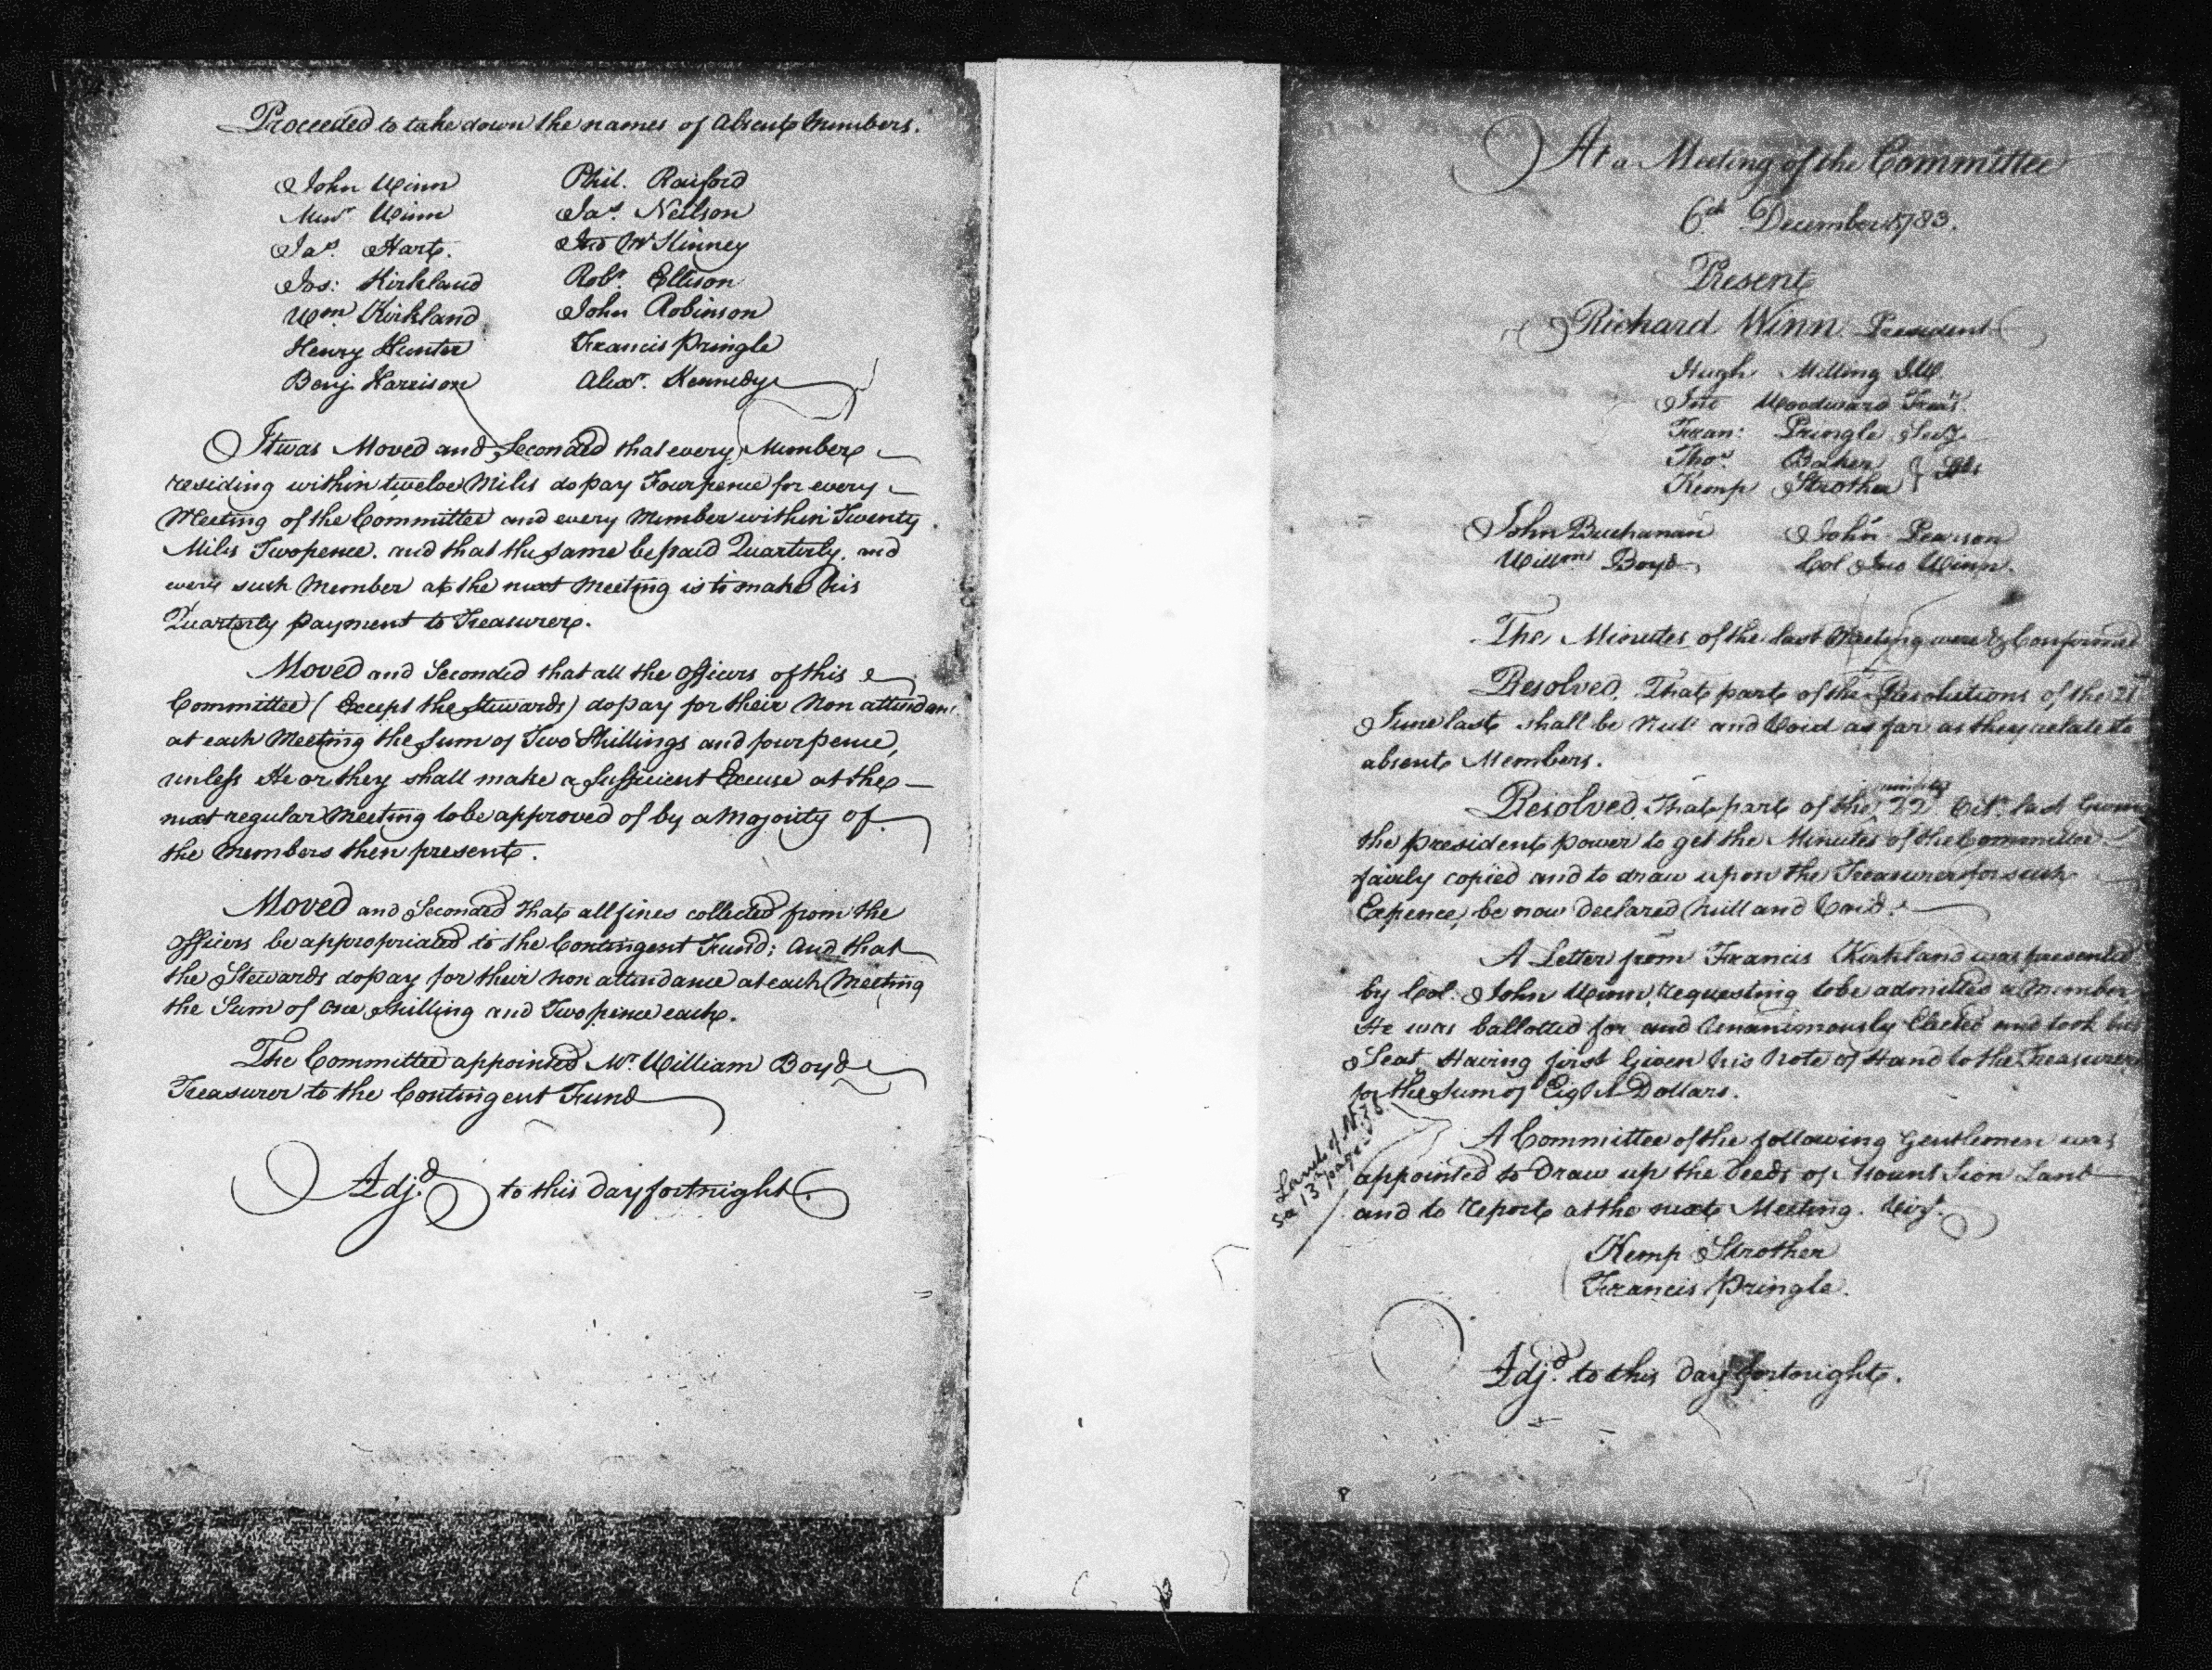 Proceeded to take down the names of Absent Members.
John Winn Phil. Raiford
Minr. Winn Jas. Neilson
Jas. Hart. Jno McKinney
Jos: Kirkland Robt. Ellison
Wm. Kirkland John Robinson
Henry Hunter Francis Pringle
Benj. Harrison Alexr. Kennedy
It was Moved and Seconded that every Member
residing within twelve Miles do pay Fourpence for every
Meeting of the Committee and every Member within Twenty
Miles Twopence. and that the same be paid Quarterly. and
every such Member at the next Meeting is to make his
Quarterly payment to Treasurer.
Moved and Seconded that all the Officers of this
Committee (Except the Stewards) do pay for their Non attendance
at each Meeting the Sum of Two Shillings and fourpence,
unless He or they shall make a Sufficient Excuse at the
next regular Meeting to be approved of by a Majority of
the Members then present.
Moved and Seconded that all fines collected from the
Officers be appropriated to the Contingent Fund; and that
the Stewards do pay for their non attendance at each Meeting
the Sum of One Shilling and Twopence each.
The Committee appointed Mr. William Boyd
Treasurer to the Contingent Fund
Adjd. to this day fortnight.
At a Meeting of the Committee
6th December 1783.
Present
Richard Winn President
Hugh Milling SW
Jno Woodward Trear.
Fran: Pringle Secy.
Thos. Baker
Kemp Strother
John Buchanan John Pearson
Willm. Boyd Col Jno Winn.
The Minutes of the last Meeting were Confirmed
Resolved, That part of the Resolutions of the 21st
June last shall be Null and Void as far as they relate to
absent Members.
minutes
Resolved, That part of the 22d Octr. last Giving
the president power to get the Minutes of the Committee
fairly copied and to draw upon the Treasurer for such
Expence, be now declared Null and Void.
A Letter from Francis Kirkland was presented
by Col. John Winn, requesting to be admitted a Member,
He was ballotted for and Unanimously Elected and took his
Seat Having first Given his Note of Hand to the Treasurer
for the Sum of Eight Dollars.
Land of
13 page
A Committee of the following Gentlemen was
appointed to Draw up the Deeds of Mount Sion Land
and to report at the next Meeting. Vizt.
Kemp Strother
Francis Pringle.
Adjd. to this day fortnight.